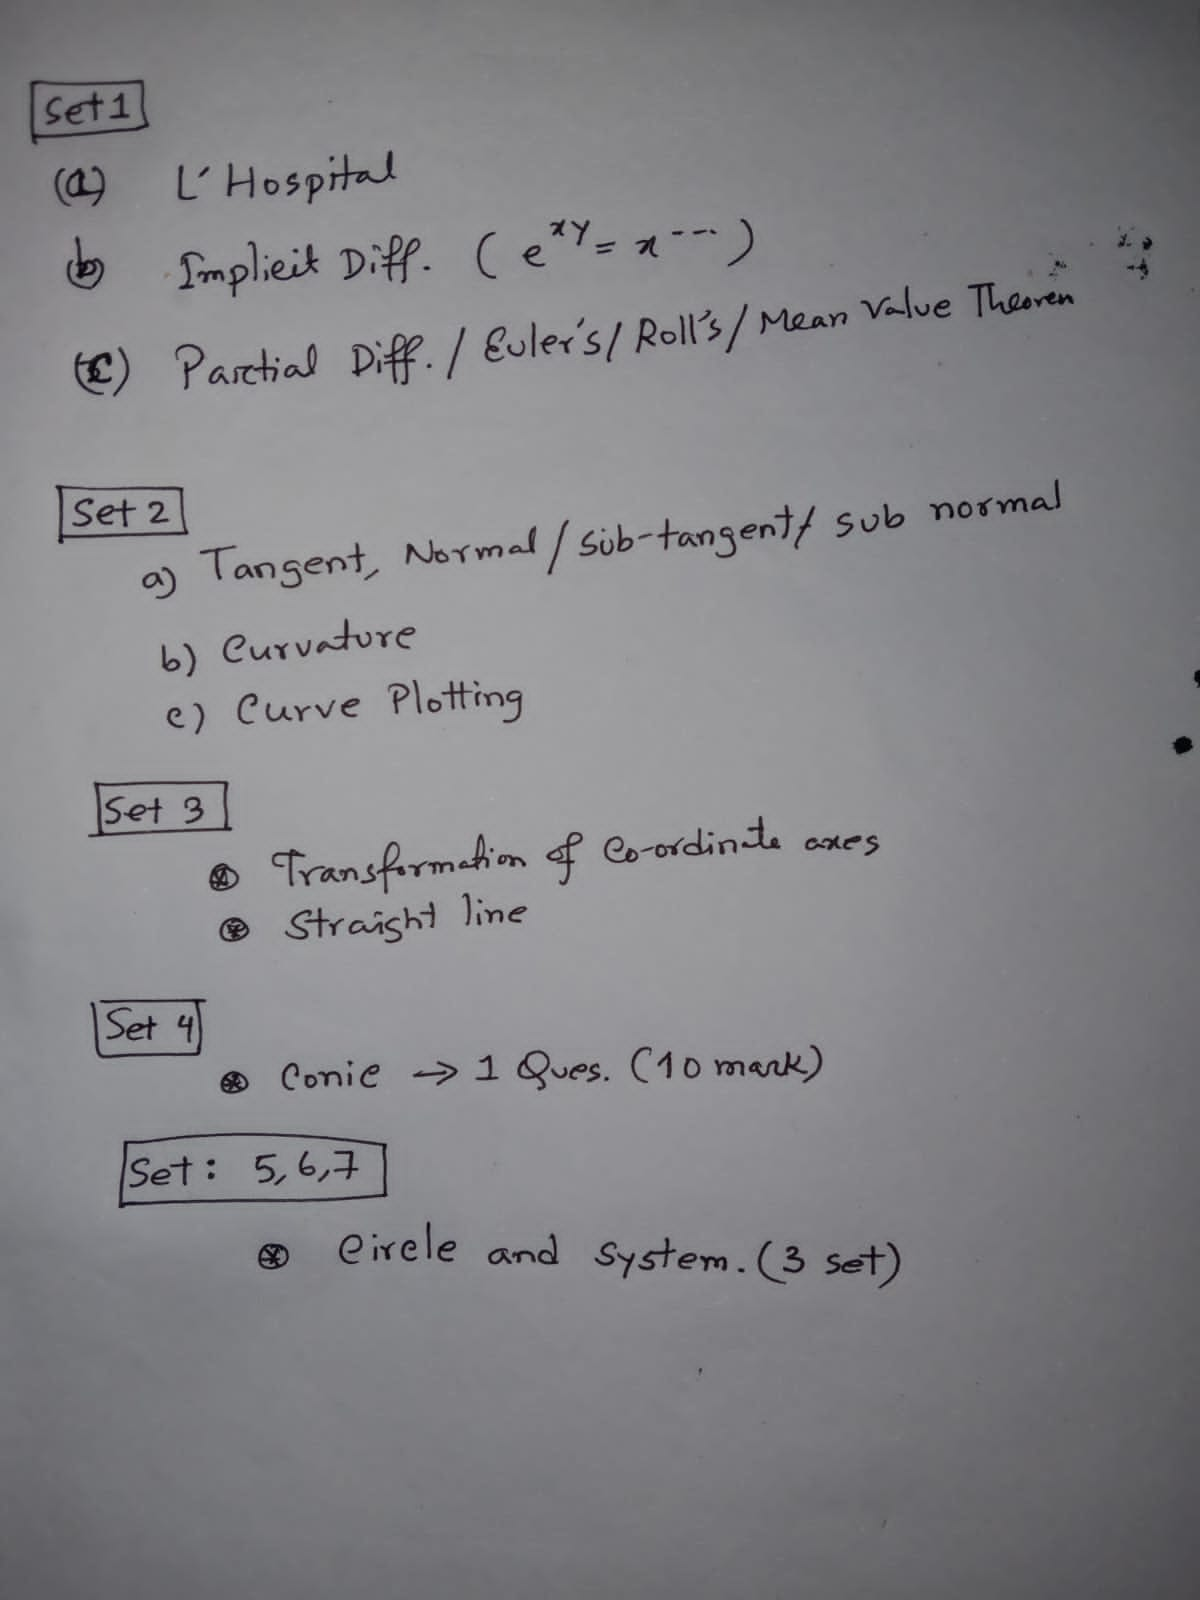 Set 1
(a) L' Hospital
(b) Implicit Diff. ( e^xy = x^--- )
(c) Partial Diff. / Euler's / Roll's / Mean Value Theoren
Set 2
a) Tangent, Normal / sub-tangent / sub normal
b) Curvature
c) Curve Plotting
Set 3
Transformation of Co-ordinate axes
Straight line
Set 4
Conic → 1 Ques. (10 mark)
Set : 5,6,7
Circle and System. (3 set)